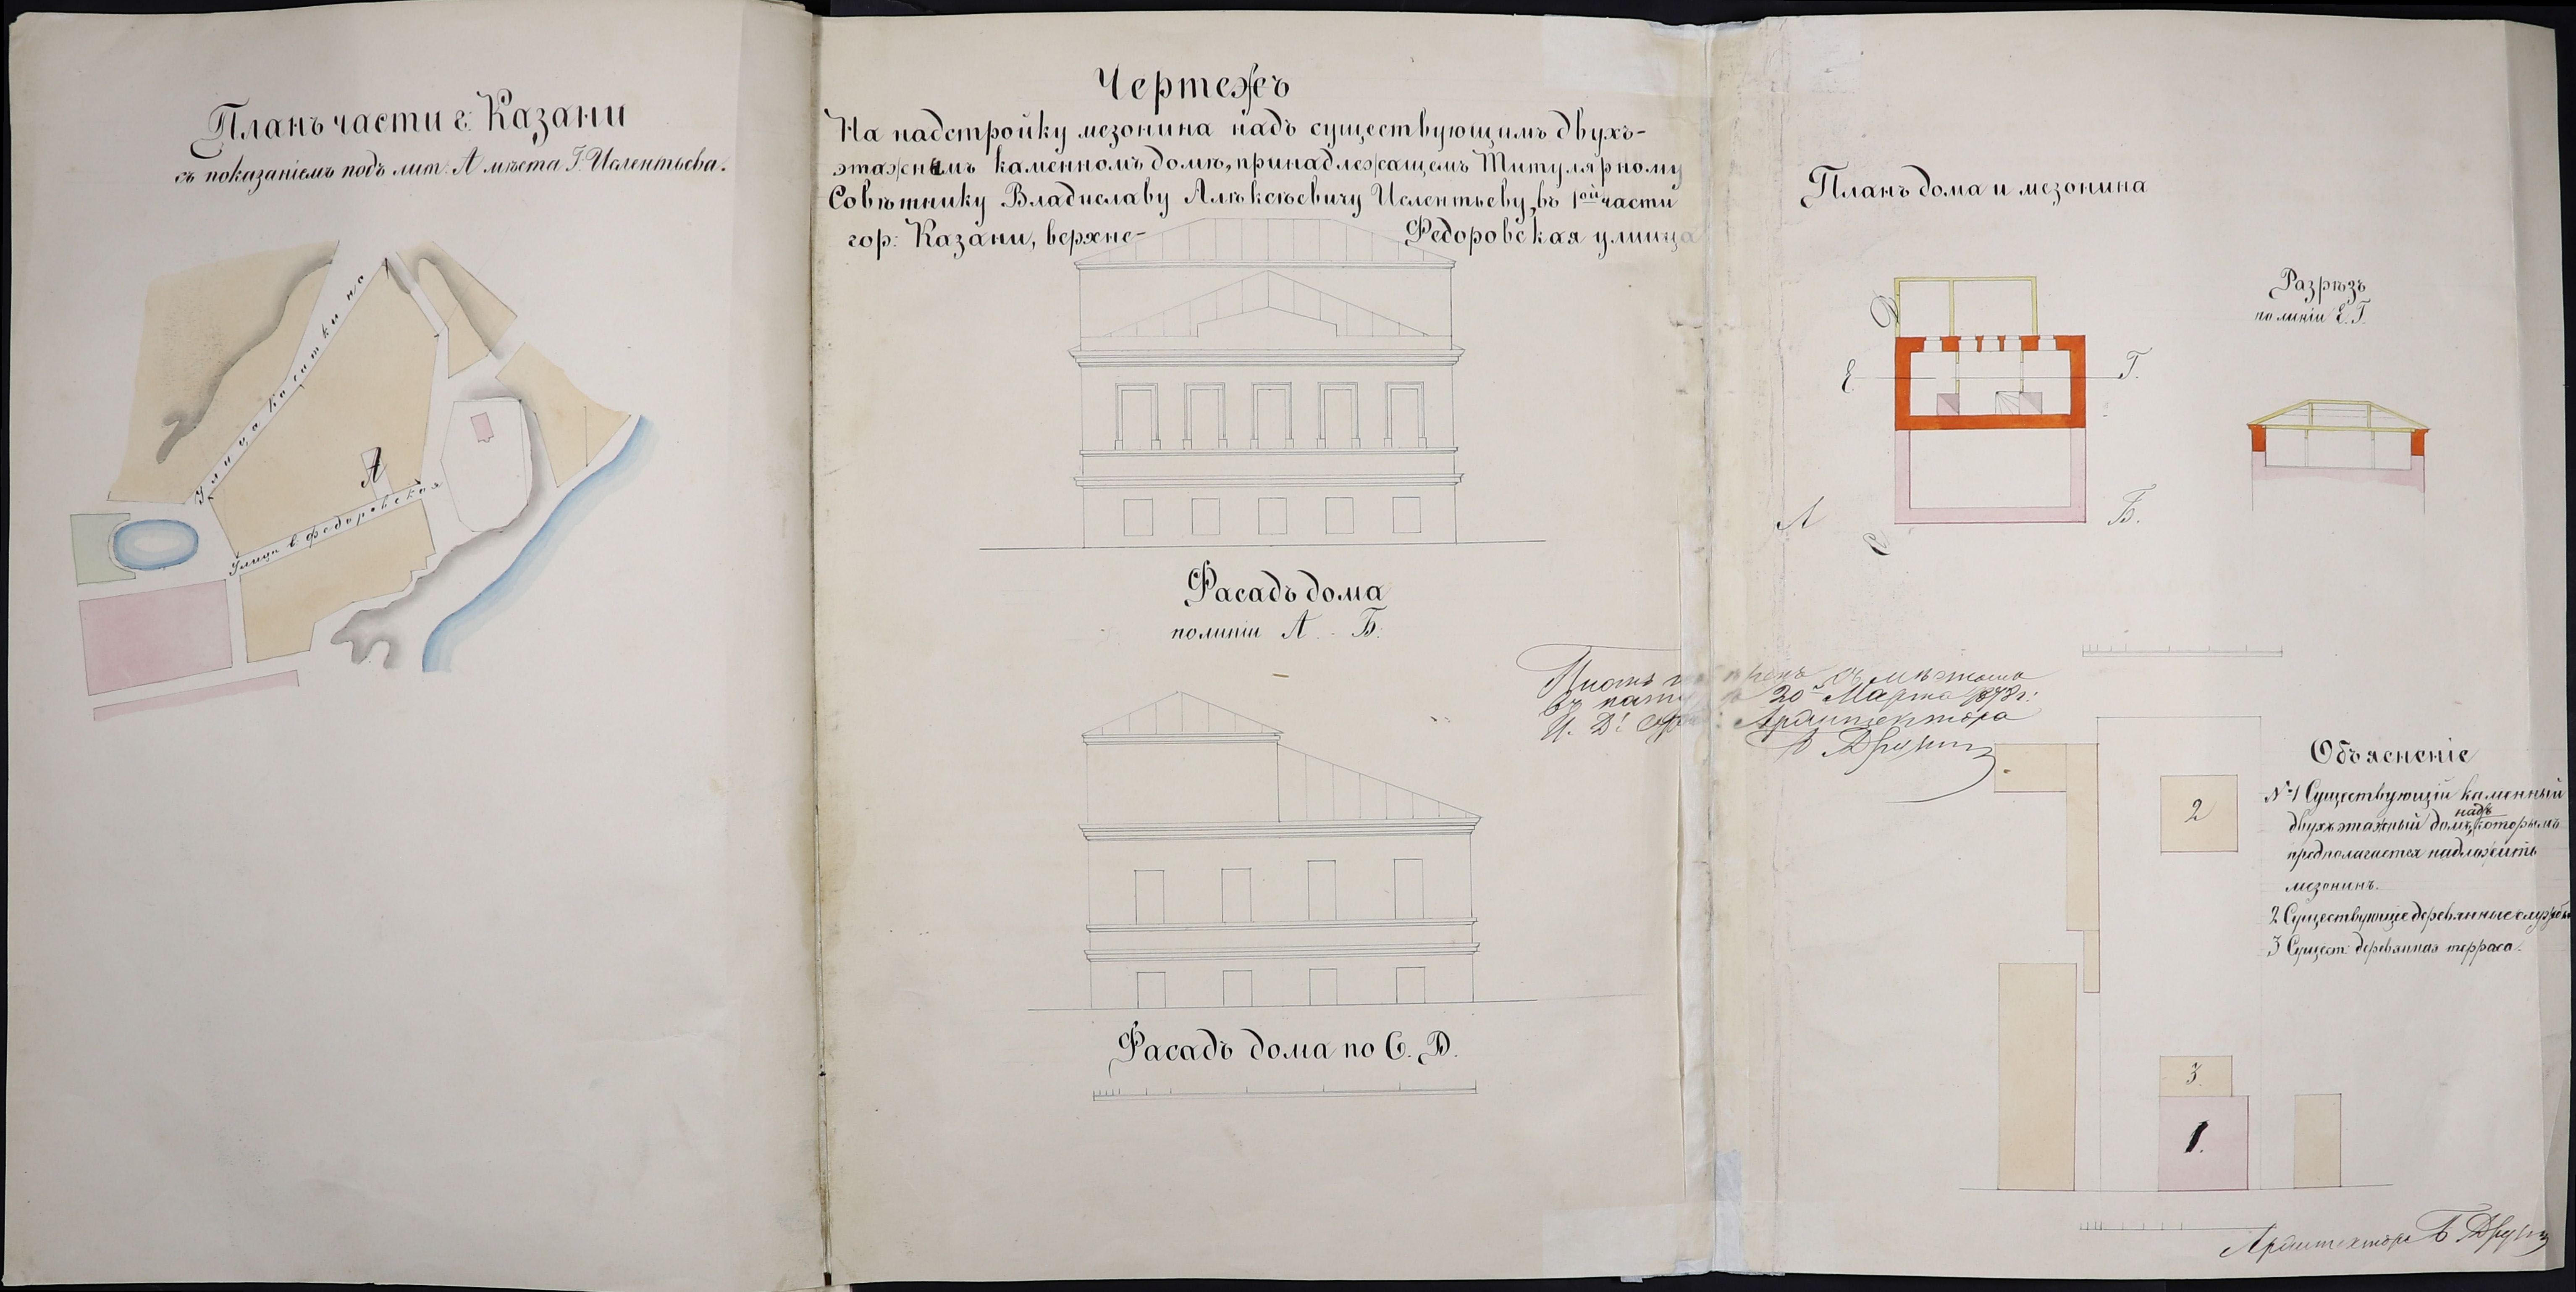 Планъ части г. Казани
съ показаніемъ подъ лит. А мѣста Г. Ислентьева.
Улица Касаткино
А
Улица в. Федоровская
Чертежъ
На надстройку мезонина надъ существующимъ двухъ-
этажнымъ каменномъ домѣ, принадлежащемъ Титулярному
Совѣтнику Владиславу Алѣксѣевичу Ислентьеву, въ 1ой части
гор: Казани, верхне-Федоровская улица
Фасадъ дома
по линіи А - Б.
Фасадъ дома по С. Д.
Планъ съ мѣстомъ
въ 20 Марта
И. Д. Архитектора
Планъ дома и мезонина
Д
Е
Г.
А
Б.
С
Разрѣзъ
по линіи Е. Г.
Объясненіе
№ 1 Существующій каменный
двухъэтажный домъ, надъ которымъ
предполагается надложить
мезонинъ.
2 Существующіе деревянные службы
3 Сущест: деревянная терраса.
2
3.
1.
Архитекторъ